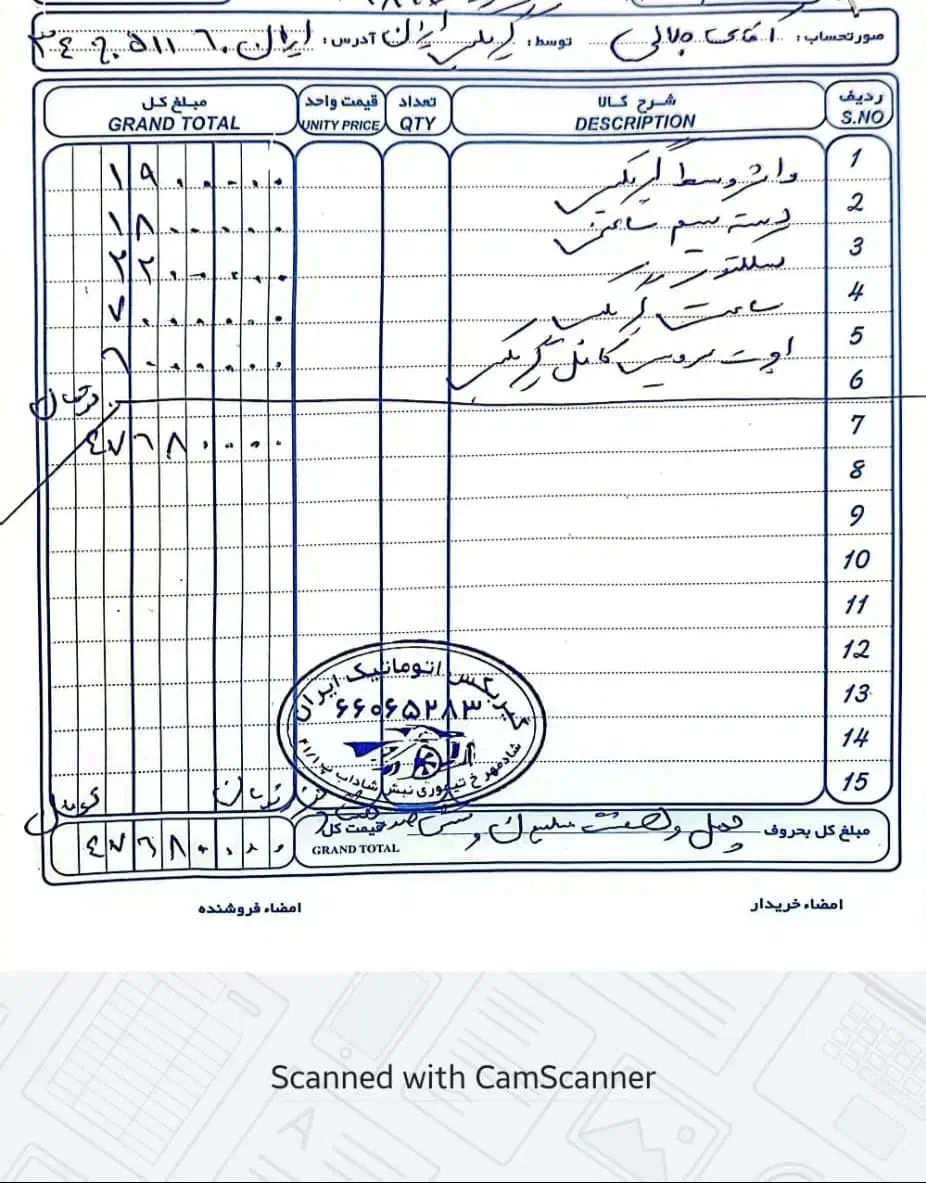 صورتحساب: آقای جلالی توسط: گیربکس ایران آدرس: ایران ۶۰ ۵۱۱ ج ۳۴
ردیف شرح کالا تعداد قیمت واحد مبلغ کل
S.NO DESCRIPTION QTY UNITY PRICE GRAND TOTAL
1 گیربکس ۱۹۰۰۰۰۰۰
2 دسته سیم ۱۸۰۰۰۰۰۰
3 سلکتور ۲۲۰۰۰۰۰۰
4 ساعت گیربکس ۷۰۰۰۰۰۰
5 سرویس کامل گیربکس ۶۰۰۰۰۰۰
6
7 ۴۷۶۸۰۰۰۰
8
9
10
11
12
13
14
15
گیربکس اتوماتیک ایران
۶۶۰۶۵۲۸۳
شادمهر خ تیموری نبش شاداب پ ۴۱/۱
تومان
مبلغ کل بحروف چهل و هفت میلیون و ششصد قیمت کل ۴۷۶۸۰۰۰۰
GRAND TOTAL
امضاء خریدار امضاء فروشنده
Scanned with CamScanner